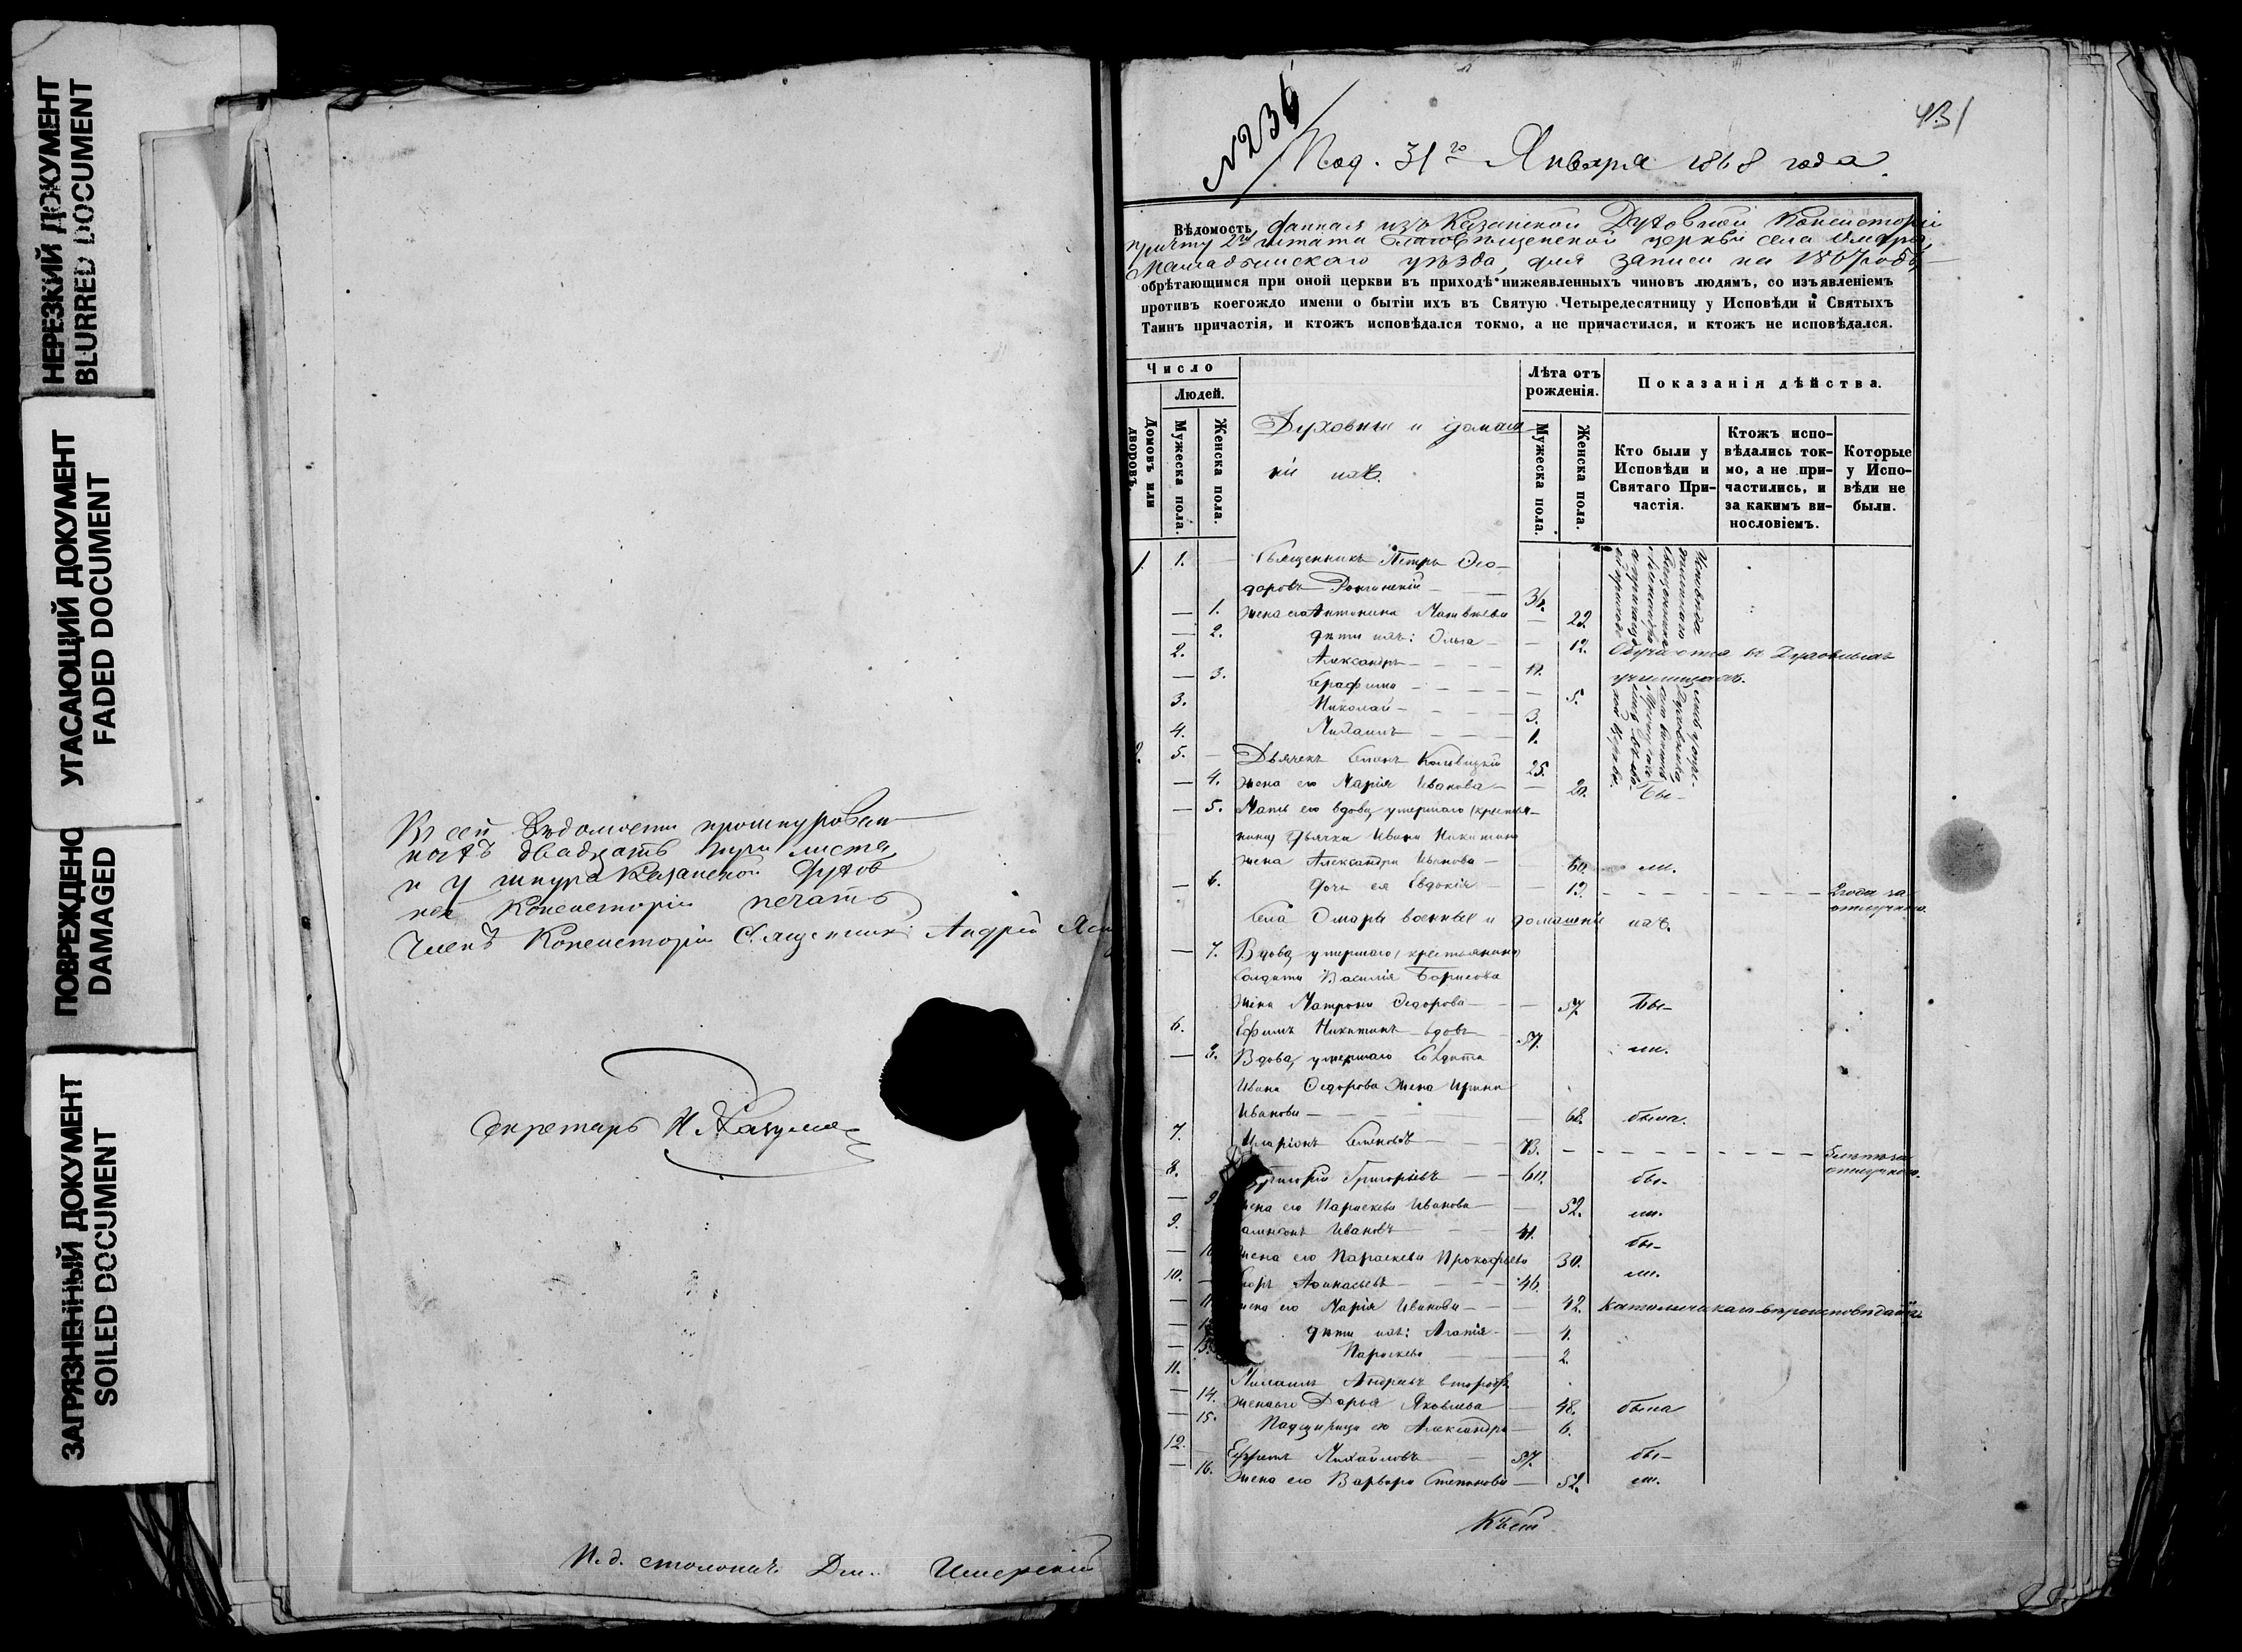 НЕРЕЗКИЙ ДОКУМЕНТ
BLURRED DOCUMENT
УГАСАЮЩИЙ ДОКУМЕНТ
FADED DOCUMENT
ПОВРЕЖДЕНО
DAMAGED
ЗАГРЯЗНЕННЫЙ ДОКУМЕНТ
SOILED DOCUMENT
Въ сей Вѣдомости прошнурован
ныхъ двадцать три листа,
и у шнура Казанской Духов
ной Консисторіи печать
Членъ Консисторіи Священникъ Андрей
Секретарь Н.
И. д. столонач. Дм.
N 236
431
Под. 31го Января 1868 года.
Вѣдомость, данная изъ Казанской Духовной Консисторіи
причту 2го штата Благовѣщенской церкви села Омары,
Мамадышскаго уѣзда, для записи на 1867 годъ
обрѣтающимся при оной церкви въ приходѣ нижеявленныхъ чиновъ людямъ, со изъявленіемъ
противъ коегождо имени о бытіи ихъ въ Святую Четыредесятницу у Исповѣди и Святыхъ
Таинъ причастія, и ктожъ исповѣдался токмо, а не причастился, и ктожъ не исповѣдался.
Число
Людей.
Домовъ или дворовъ.
Мужеска пола.
Женска пола.
Духовные и домаш
ніе ихъ.
Лѣта отъ рожденія.
Мужеска пола.
Женска пола.
Показанія дѣйства.
Кто были у Исповѣди и Святаго Причастія.
Ктожъ исповѣдались токмо, а не причастились, и за какимъ винословіемъ.
Которые у Исповѣди не были.
1. 1. Священникъ Петръ Ѳео-
доровъ 36.
1. Жена его Антонина Матвѣева 29.
2. дѣти ихъ: Ольга 12.
2. Александръ Обучается въ Духовномъ
училищѣ.
3. Серафима 5.
3. Николай 3.
4. Михаилъ 1.
2. 5. Дьячекъ 25.
4. Жена его Марія Иванова 20. Бы-
5. Мать его вдова умершаго
дьячка Ивана Никитина
жена Александра Иванова 60. ли.
6. Дочь ея Евдокія
Села Омары военные и домашніе ихъ.
7. Вдова умершаго
солдата Василія Борисова
жена Матрона Ѳедорова 57. Бы-
6. Ефимъ Никитинъ вдовъ 57. ли.
8. Вдова умершаго Солдата
Ивана Ѳедорова жена Ирина
Иванова 68. была.
7. Иларіонъ
8. Григорій Григорьевъ 60. бы-
9. жена его Параскева Иванова 52. ли.
9. Ивановъ 41. бы-
жена его Параскева Прокофьева 30. ли.
10. Аѳанасьевъ 46.
жена его Марія Иванова 42. Католическаго вѣроисповѣданія
дѣти ихъ: Агапія 4.
Параскева 2.
11. Михаилъ Андреевъ
14. Жена его Дарья Яковлева 48. была
15. Падчерица его Александра 6.
12. Ефремъ Михайловъ 57. бы-
16. Жена его Варвара Степанова 52. ли.